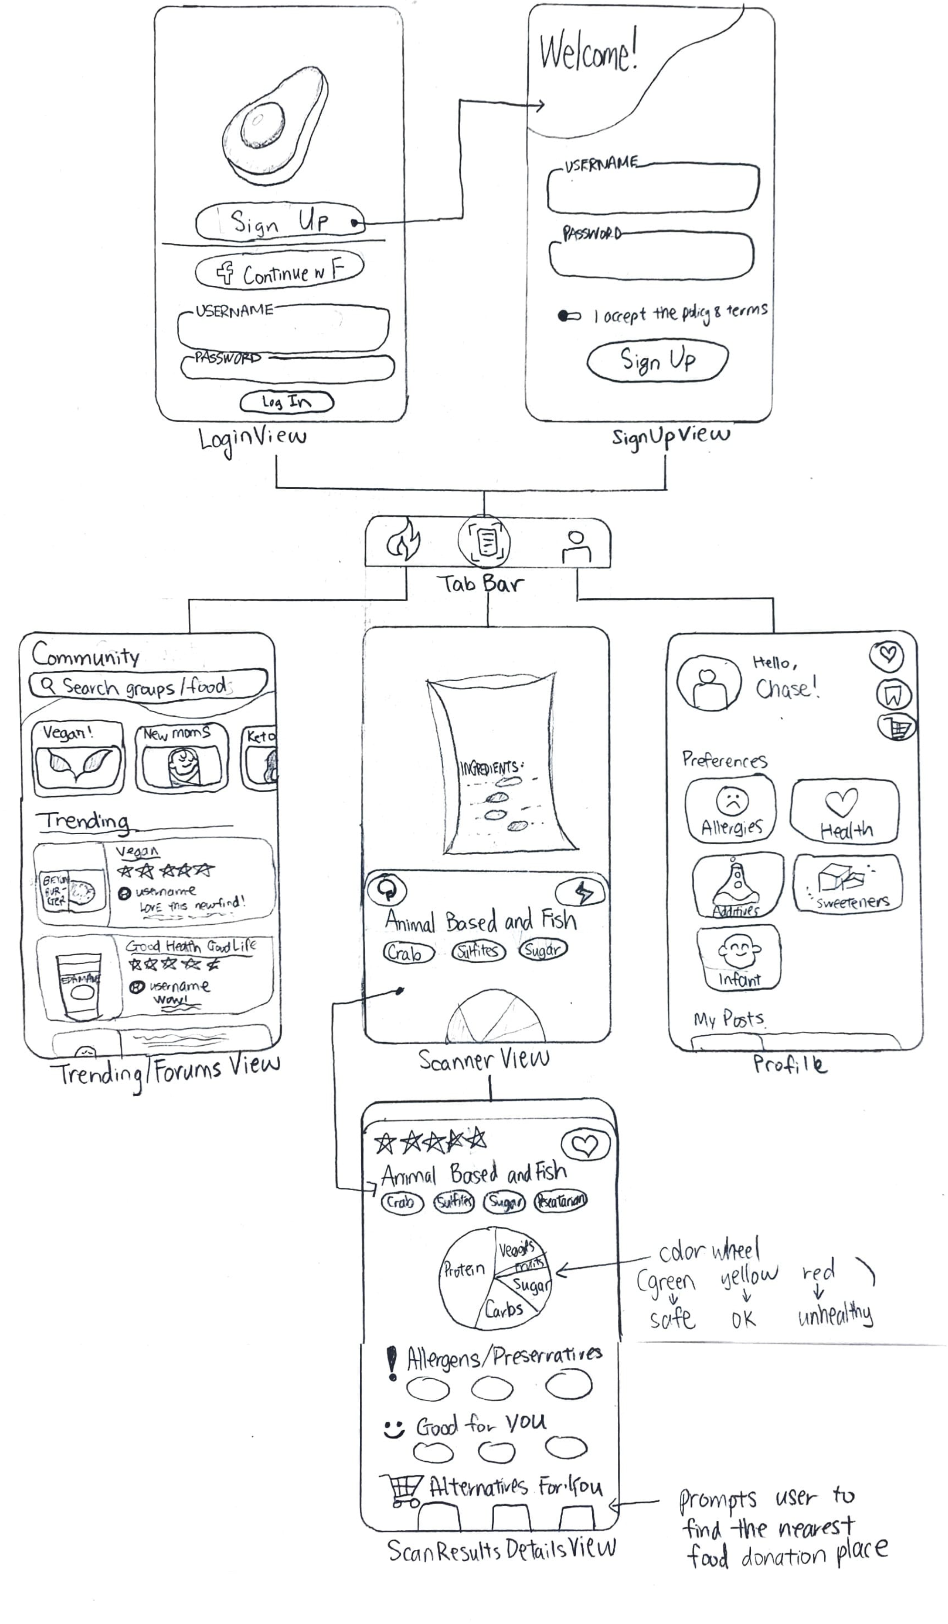 Welcome!
Sign Up
Continue w F
USERNAME
PASSWORD
Log In
LoginView
USERNAME
PASSWORD
I accept the policy & terms
Sign Up
SignUpView
Tab Bar
Community
Search groups/food
Vegan!
New moms
Keto
Trending
Vegan
BEYOND
BUR-
GER
username
LOVE this new find!
Good Health Good Life
EDAMAME
username
Wow!
Trending/Forums View
INGREDIENTS:
Animal Based and Fish
Crab
Sulfites
Sugar
Scanner View
Hello,
Chase!
Preferences
Allergies
Health
Additives
Sweeteners
Infant
My Posts
Profile
Animal Based and Fish
Crab
Sulfites
Sugar
Pescatarian
Protein
Veggies
Fruits
Sugar
Carbs
color wheel
(green yellow red )
safe OK unhealthy
! Allergens/Preservatives
Good for you
Alternatives For You
prompts user to
find the nearest
food donation place
ScanResultsDetailsView